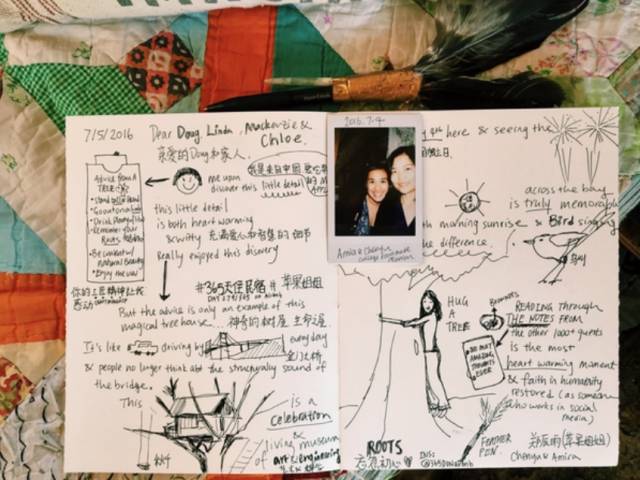 7/5/2016 Dear Doug Linda, Mackenzie &
Chloe.
亲爱的Doug和家人,
Advice from A
TREE
• Stand tall & proud
• Go out on a limb
• Drink Plenty of
• Remember your
Roots
• Be content w/
natural Beauty
• Enjoy the view
me upon
discover this little detail
我是来自中国
this little detail
is both heart warming
& witty 充满爱心和智慧的细节
Really enjoyed this discovery
#365天住民宿 # 苹果姐姐
But the advice is only an example of this
magical tree house... 神奇的树屋
It's like driving by everyday
金门大桥
& people no longer think abt the structurally sound of
the bridge.
This is a
celebration
&
living museum
of art & engineering
2016.7.4
Amira & Chenyu
here & seeing the
across the bay
is truly memorable
with morning sunrise & Bird singing
the difference.
HUG
A
TREE
READING through
THE NOTES FROM
the other 1000+ guests
is the most
heart warming moment
& faith in humanity
restored (as someone
who works in social
media)
FEATHER
PEN.
ROOTS
INS:
(苹果姐姐)
Chenyu & Amira